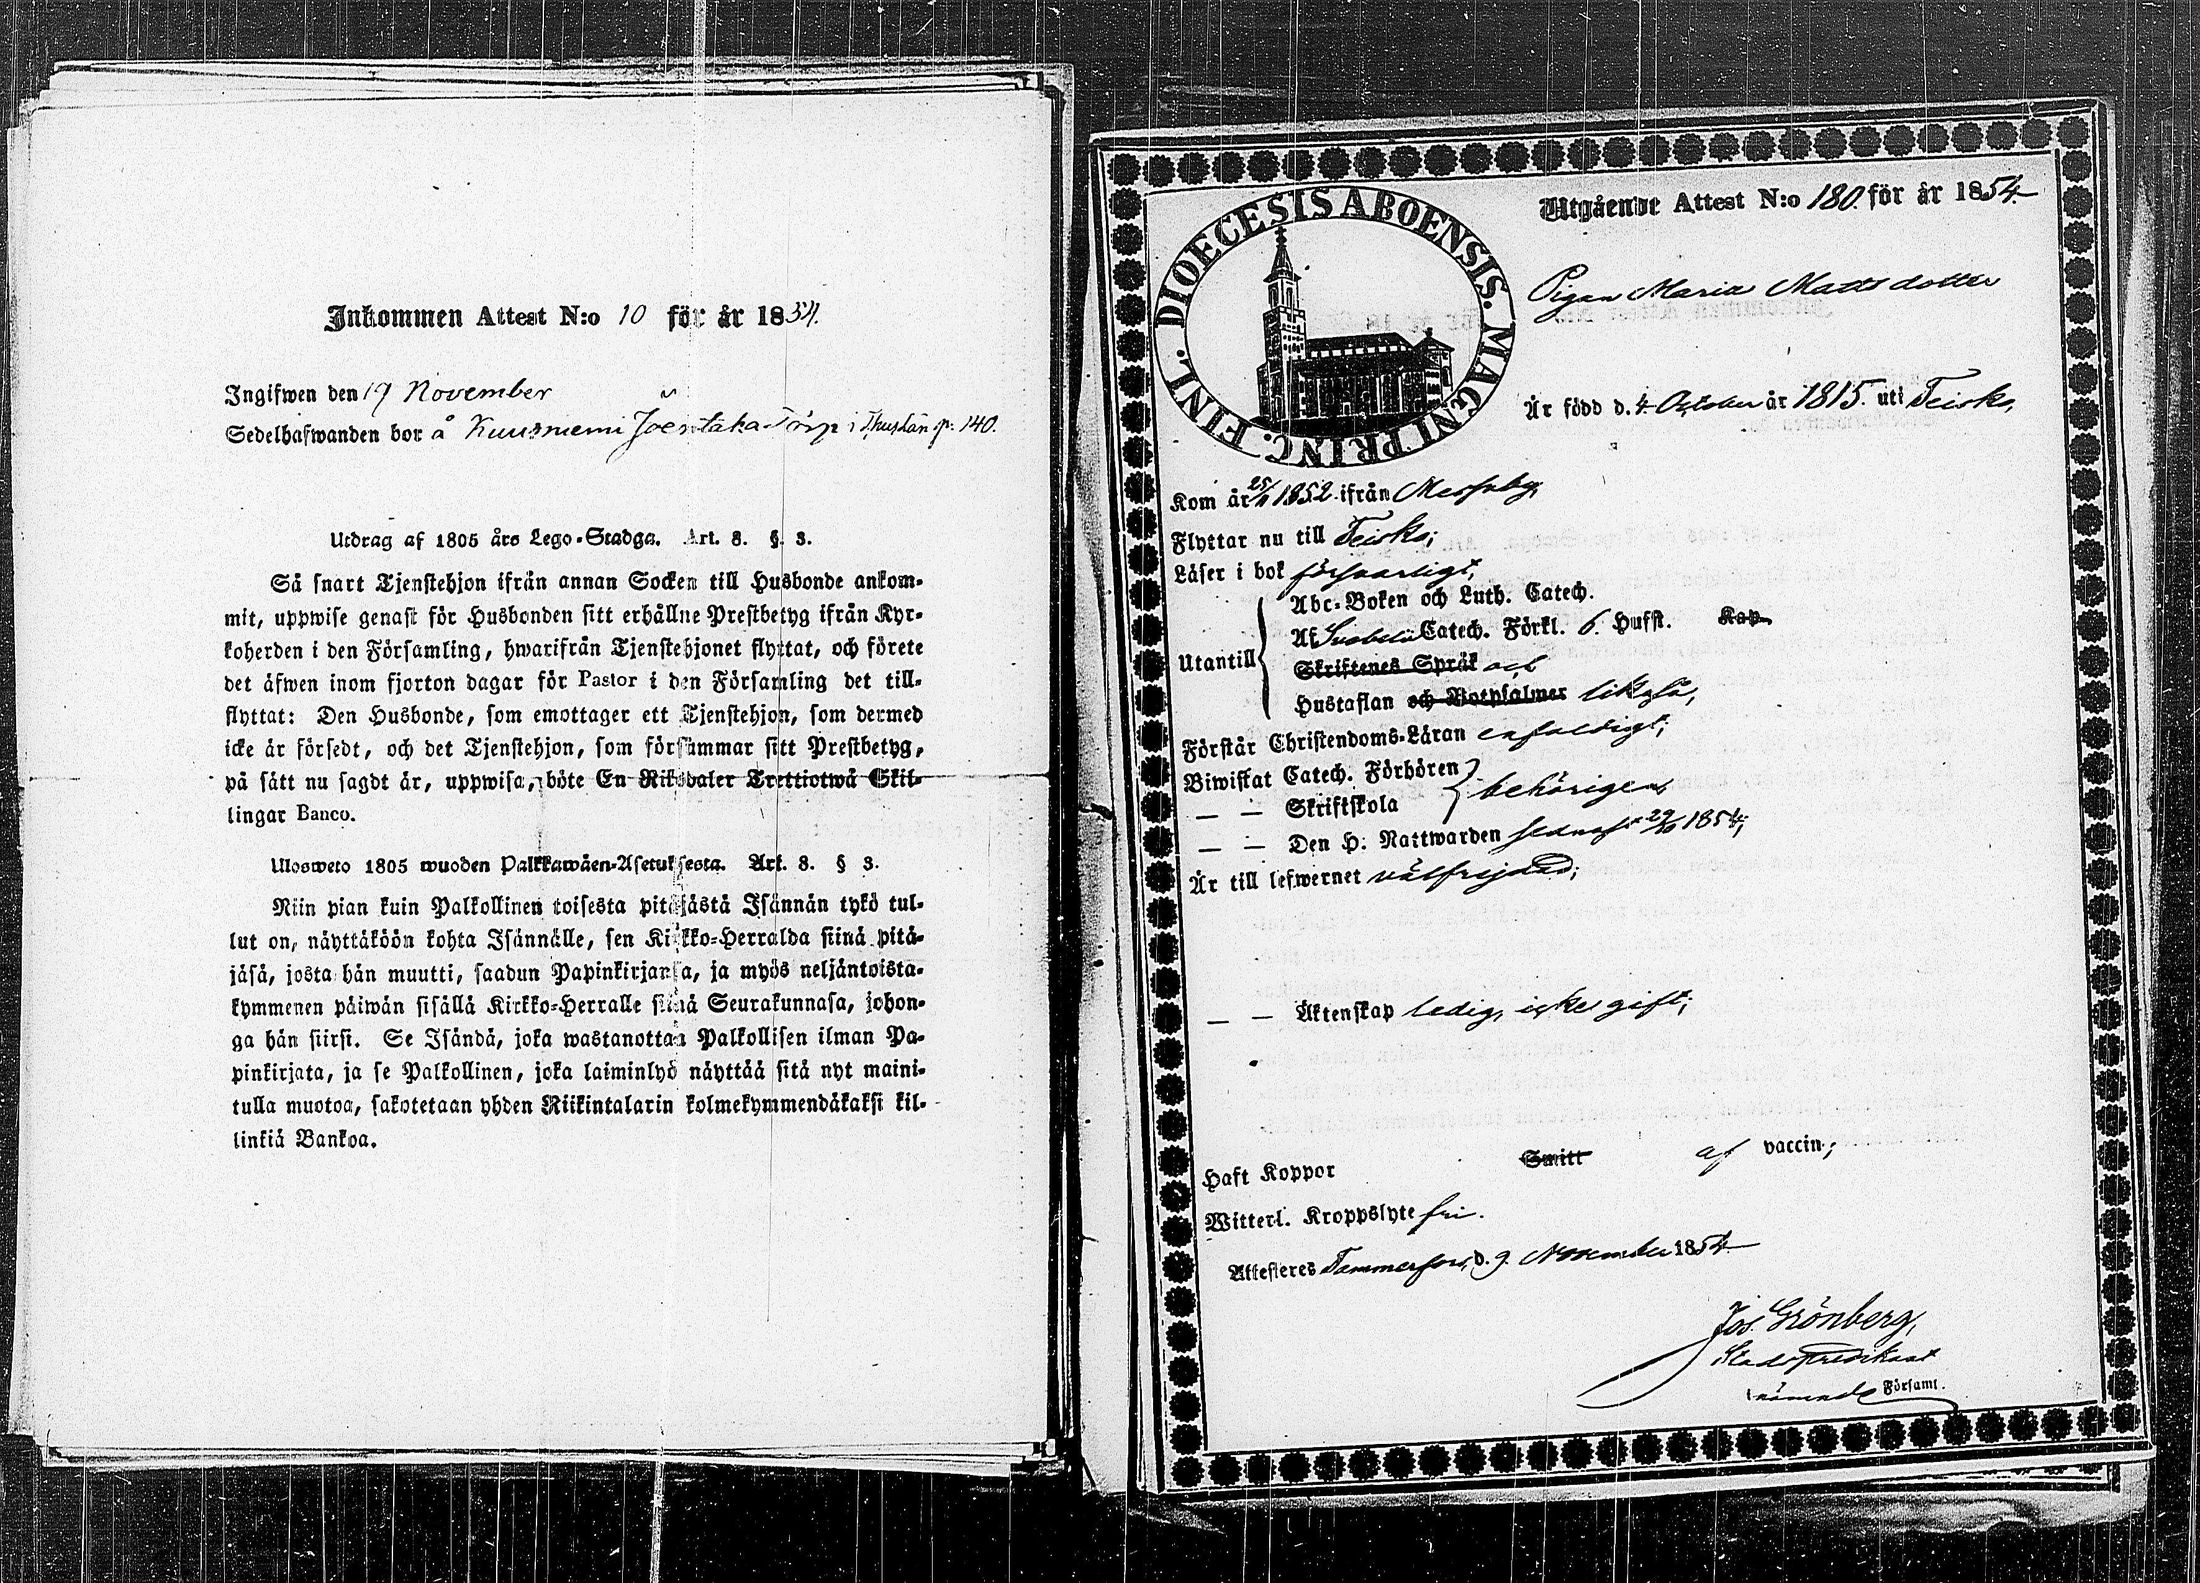 Inkommen Attest N:o 10 för år 1854.
Ingifwen den 19 November
Sedelhafwanden bor å Kuusniemi Torp i p: 140.
Utdrag af 1805 års Lego-Stadga. Art. 8. §. 3.
Så snart Tjenstehjon ifrån annan Socken till Husbonde ankom-
mit, uppwise genast för Husbonden sitt erhållne Prestbetyg ifrån Kyr-
koherden i den Församling, hwarifrån Tjenstehjonet flyttat, och förete
det äfwen inom fjorton dagar för Pastor i den Församling det till-
flyttat: Den Husbonde, som emottager ett Tjenstehjon, som dermed
icke är försedt, och det Tjenstehjon, som försummar sitt Prestbetyg,
på sätt nu sagdt är, uppwisa, böte En Riksdaler Trettiotwå Skil-
lingar Banco.
Ulosweto 1805 wuoden Palkkawäen-Asetuksesta. Art. 8. § 3.
Niin pian kuin Palkollinen toisesta pitäjästä Isännän tykö tul-
lut on, näyttäköön kohta Isännälle, sen Kirkko-Herralda siinä pitä-
jäsä, josta hän muutti, saadun Papinkirjansa, ja myös neljäntoista-
kymmenen päiwän sisällä Kirkko-Herralle siinä Seurakunnasa, johon-
ga hän siirsi. Se Isändä, joka wastanottaa Palkollisen ilman Pa-
pinkirjata, ja se Palkollinen, joka laiminlyö näyttää sitä nyt maini-
tulla muotoa, sakotetaan yhden Riikintalarin kolmekymmendäkaksi kil-
linkiä Bankoa.
DIOECESIS ABOENSIS. MAGNI PRINC. FINL.
Utgående Attest N:o 180. för år 1854
Pigan Maria Mattsdotter
Är född d. 4 October år 1815. uti Teisko,
Kom år 25/11 1852. ifrån Messuby,
Flyttar nu till Teisko;
Läser i bok försvarligt;
Utantill
Abc-Boken och Luth. Catech.
Af Svebelii Catech. Förkl. 6. Hufst. Kap.
Skriftenes Språk och
Hustaflan och Botpsalmer likaså,
Förstår Christendoms-Läran enfaldigt;
Biwistat Catech. Förhören
— — Skriftskola behörigen,
— — Den H: Nattwarden sednast 29/10 1854;
Är till lefwernet välfrejdad;
— — Äktenskap ledig, icke gift;
Haft Koppor Smitt af vaccin;
Witterl. Kroppslyte fri.
Attesteres Tammerfors, d. 9. November 1854
Jos. Grönberg,
Stadspredikant
Församl.